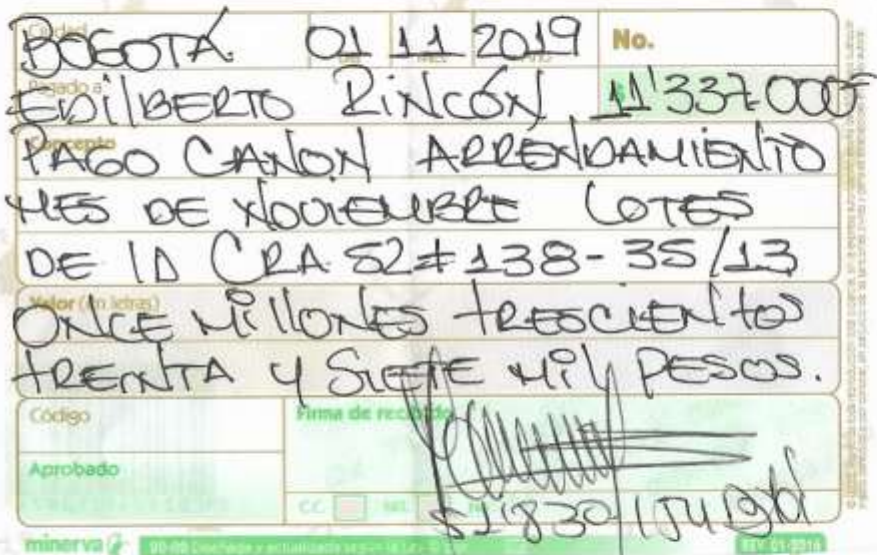 Ciudad
BOGOTÁ 01 11 2019 No.
Pagado a
EDILBERTO RINCÓN 11'337.000
Concepto
PAGO CANON ARRENDAMIENTO
MES DE NOVIEMBRE LOTES
DE LA CRA 52 # 138 - 35 /13
Valor (en letras)
ONCE MILLONES TRESCIENTOS
TREINTA Y SIETE MIL PESOS.
Código Firma de recibido
Aprobado
C.C. NIT.
minerva REV. 01-2016